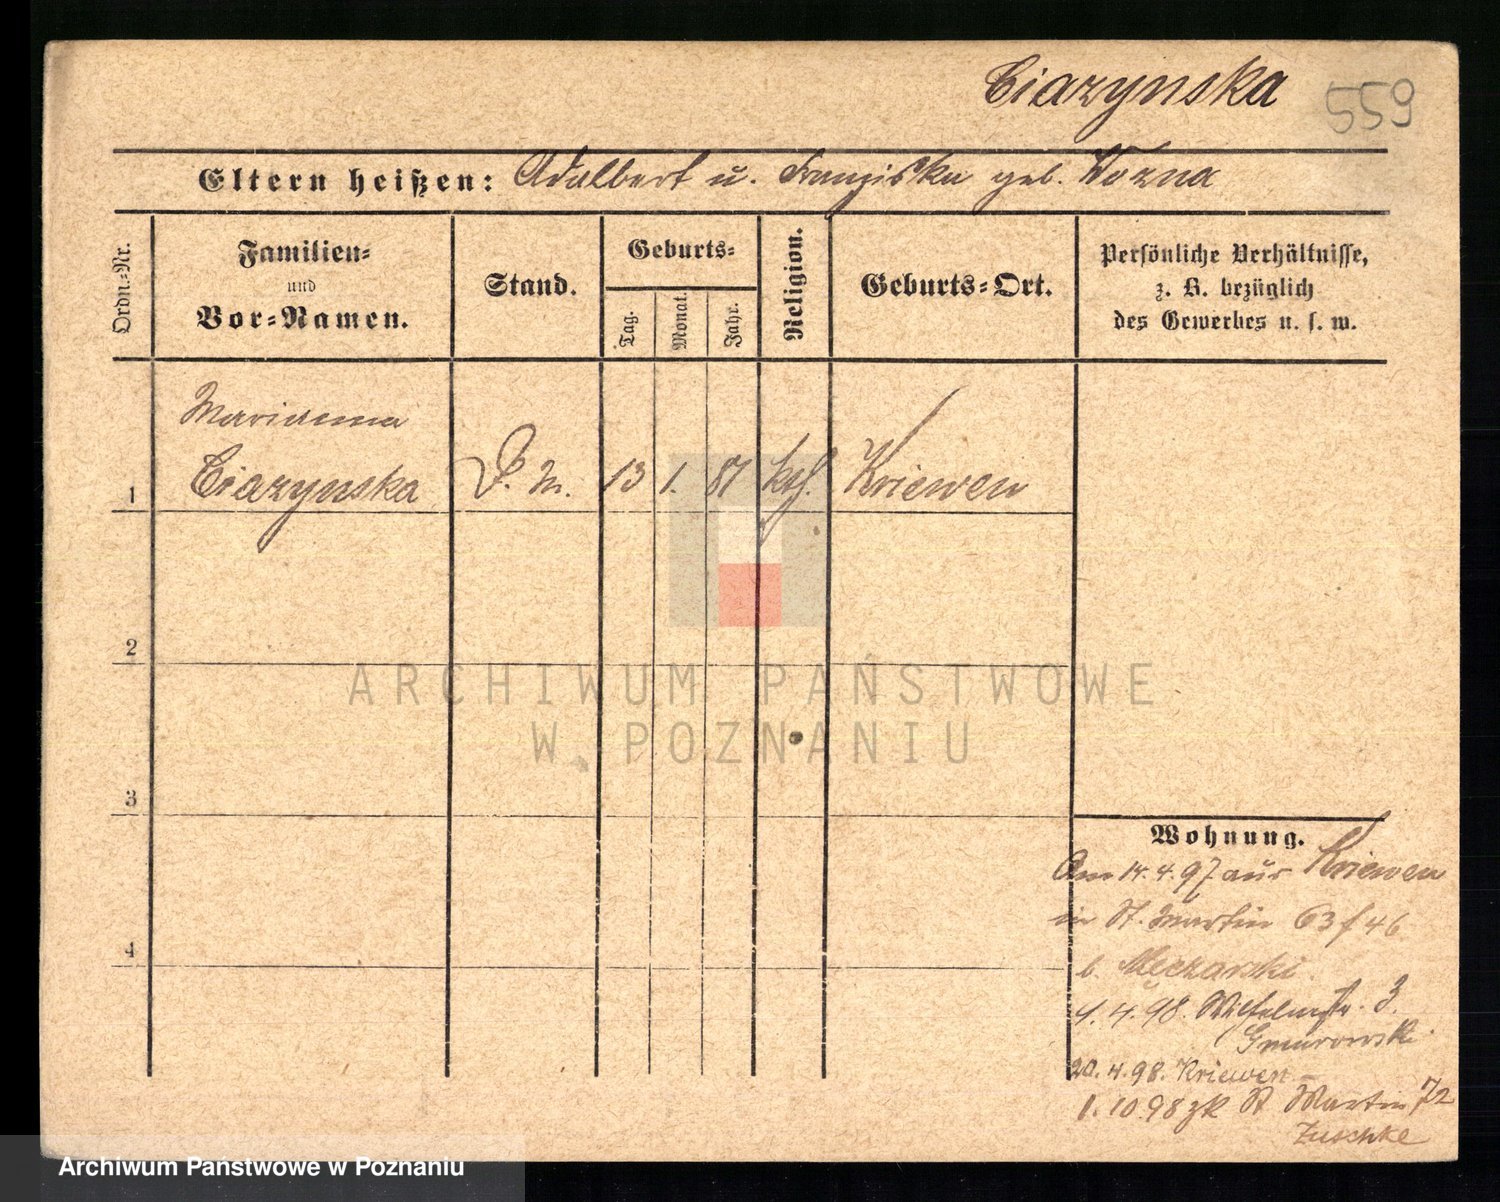 Ciazynska 559
Eltern heißen: Adalbert u. Franziska geb. Wozna
Ordn.-Nr.
Familien-
und
Vor-Namen.
Stand.
Geburts-
Tag.
Monat.
Jahr.
Religion.
Geburts-Ort.
Persönliche Verhältnisse,
z. B. bezüglich
des Gewerbes u. s. w.
Marianna
1 Ciazynska D. M. 13 1. 87 kth. Kriewen
2
3
4
Wohnung.
Am 14.4.97 aus Kriewen
in St. Martin 63/46
b. Meczarski.
4.4.98. Wilhelmstr. 3.
Gmurowski
20.4.98. Kriewen
1.10.98 zk St Martin 72
Zuschke
ARCHIWUM PAŃSTWOWE
W POZNANIU
Archiwum Państwowe w Poznaniu